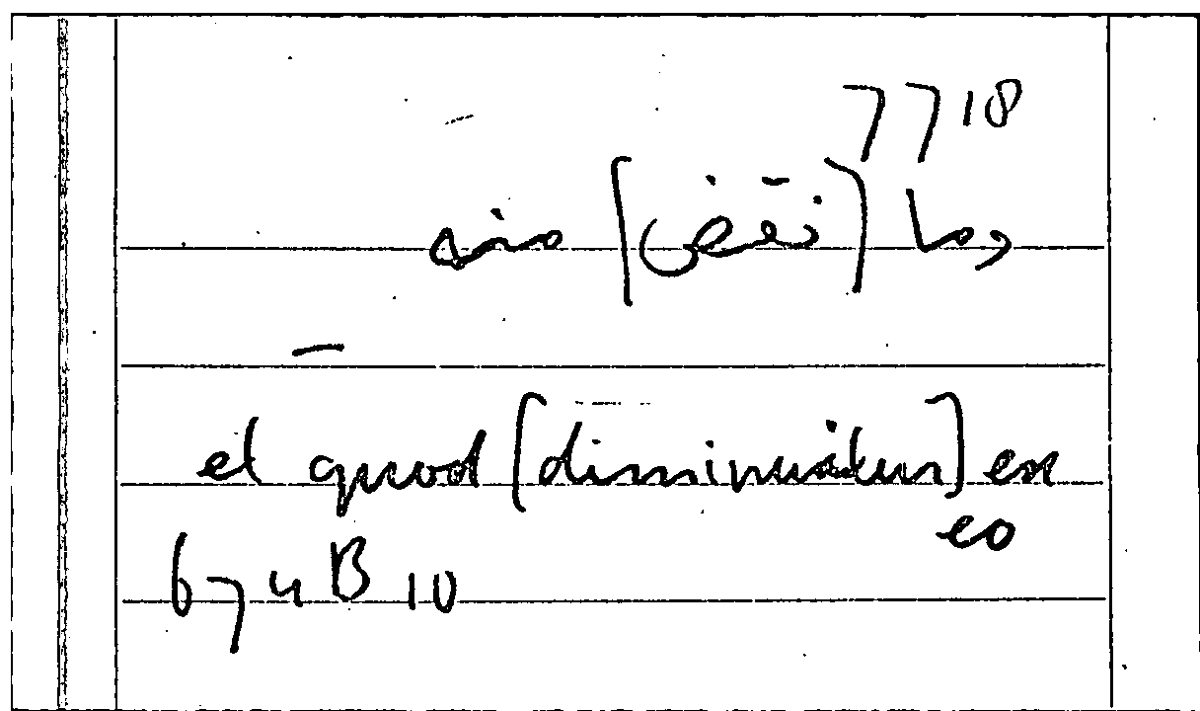 77 18
وما [ينقص] منه
et quod [diminuitur] ex
eo
674 B 10